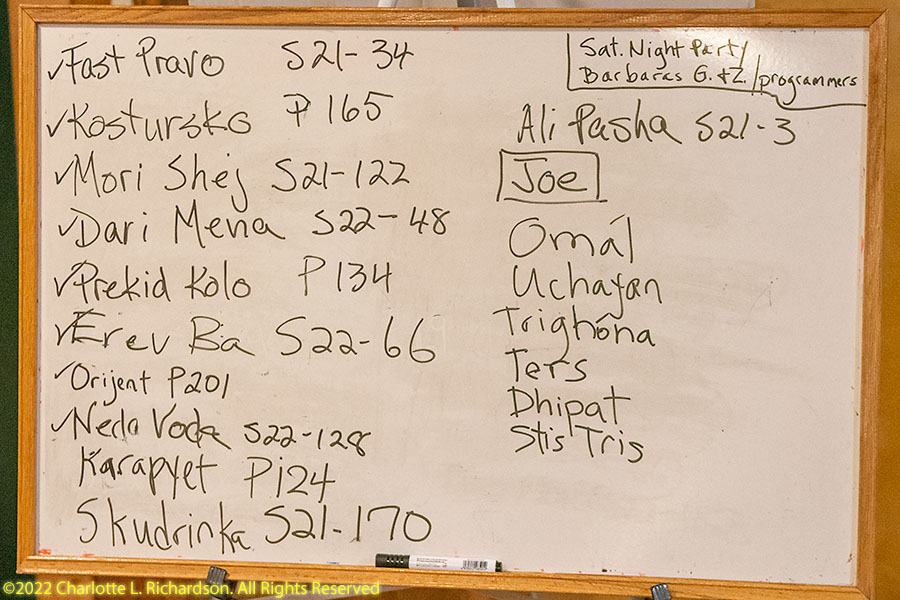 ✓Fast Pravo S21-34
✓Kostursko P 165
✓Mori Shej S21-122
✓Dari Mena S22-48
✓Prekid Kolo P 134
✓Erev Ba S22-66
✓Orijent P201
✓Neda Voda S22-128
Karapyet P124
Skudrinka S21-170
Sat. Night Party
Barbaras G. & Z. / programmers
Ali Pasha S21-3
Joe
Omál
Uchayan
Trighóna
Ters
Dhipat
Stis Tris
©2022 Charlotte L. Richardson. All Rights Reserved